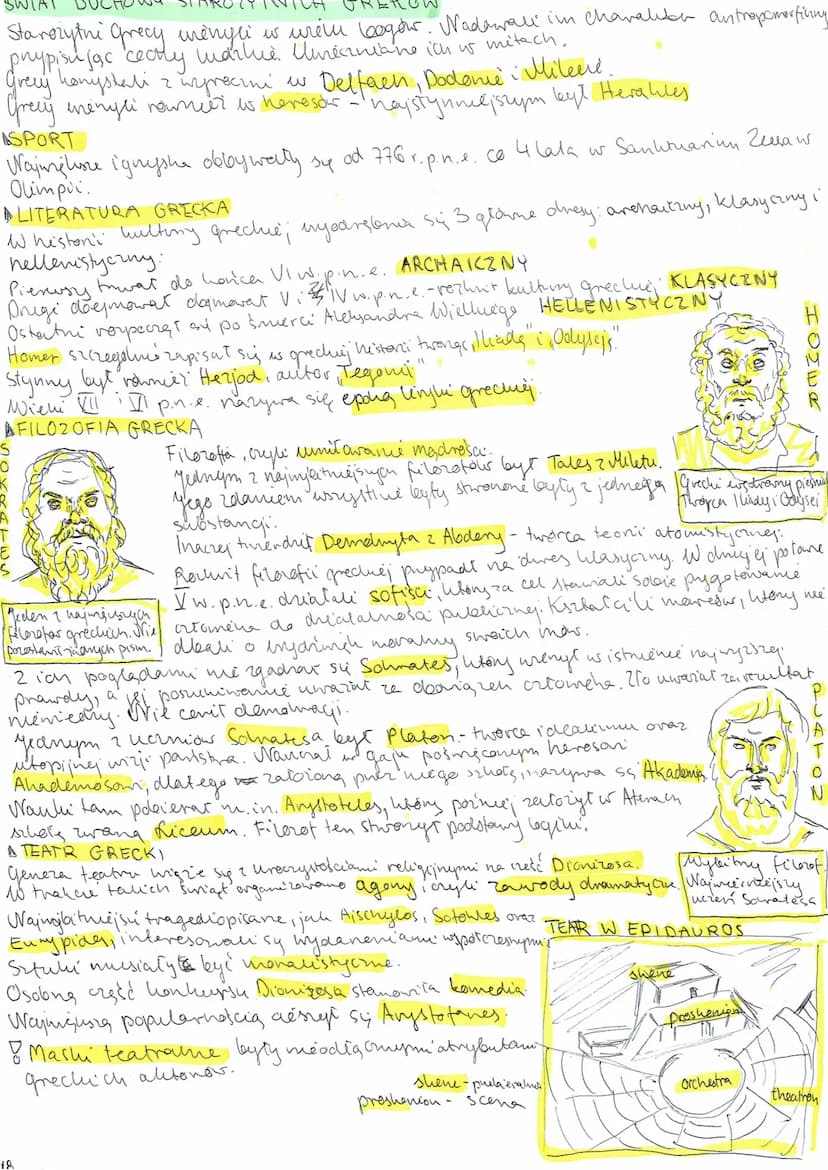 ŚWIAT DUCHOWY STAROŻYTNYCH GREKÓW
Starożytni Grecy wierzyli w wielu bogów. Nadawali im charakter antropomorficzny
przypisując cechy ludzkie. Uwieczniano ich w mitach.
Grecy korzystali z wyroczni w Delfach, Dodonie i Milecie.
Grecy wierzyli również w herosów - najsłynniejszym był Herakles
SPORT
Największe igrzyska odbywały się od 776 r.p.n.e. co 4 lata w Sanktuarium Zeusa w
Olimpii.
LITERATURA GRECKA
W historii kultury greckiej wyodrębnia się 3 główne okresy: archaiczny, klasyczny i
hellenistyczny.
Pierwszy trwał do końca VI w. p.n.e. ARCHAICZNY
Drugi obejmował V i IV w. p.n.e. - rozkwit kultury greckiej KLASYCZNY
Ostatni rozpoczął się po śmierci Aleksandra Wielkiego HELLENISTYCZNY
Homer szczególnie zapisał się w greckiej historii tworząc „Iliadę" i „Odyseję"
Słynny był również Hezjod, autor „Teogonii"
Wieki VII i VI p.n.e. nazywa się epoką liryki greckiej.
HOMER
Grecki wędrowny pieśniarz
Twórca Iliady i Odysei
FILOZOFIA GRECKA
SOKRATES
Jeden z największych
filozofów greckich. Nie
pozostawił żadnych pism.
Filozofia, czyli umiłowanie mądrości.
Jednym z najwybitniejszych filozofów był Tales z Miletu.
Jego zdaniem wszystkie byty stworzone były z jednej
substancji.
Inaczej twierdził Demokryt z Abdery - twórca teorii atomistycznej.
Rozkwit filozofii greckiej przypadł na okres klasyczny. W drugiej połowie
V w. p.n.e. działali sofiści, którzy za cel stawiali sobie przygotowanie
człowieka do działalności publicznej. Kształcili mówców, którzy nie
dbali o wydźwięk moralny swoich mów.
Z ich poglądami nie zgadzał się Sokrates, który wierzył w istnienie najwyższej
prawdy, a jej poszukiwanie uważał za obowiązek człowieka. Zło uważał za rezultat
niewiedzy. Nie cenił demokracji.
Jednym z uczniów Sokratesa był Platon - twórca idealizmu oraz
utopijnej wizji państwa. Nauczał w gaju poświęconym herosowi
Akademosowi, dlatego założoną przez niego szkołę nazywa się Akademią
Nauki tam pobierał m.in. Arystoteles, który później założył w Atenach
szkołę zwaną Liceum. Filozof ten stworzył podstawy logiki.
PLATON
Wybitny filozof.
Najwierniejszy
uczeń Sokratesa
TEATR GRECKI
Geneza teatru wiąże się z uroczystościami religijnymi na cześć Dionizosa.
W trakcie takich świąt organizowano agony, czyli zawody dramatyczne.
Najwybitniejsi tragediopisarze, jak Aischylos, Sofokles oraz
Eurypides, interesowali się wydarzeniami współczesnymi
Sztuki musiały być moralistyczne.
Osobną część konkursu Dionizosa stanowiła komedia.
Największą popularnością cieszył się Arystofanes.
! Maski teatralne były nieodłącznymi atrybutami
greckich aktorów.
skene - przebieralnia
proskenion - scena
TEATR W EPIDAUROS
skene
proskenion
orchestra
theatron